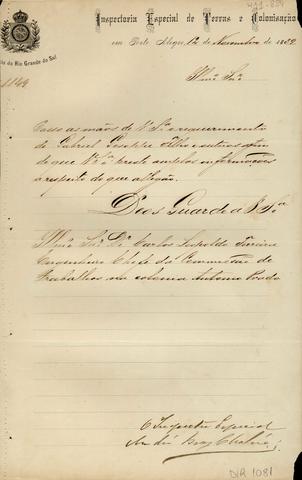 Inspectoria Especial de Terras e Colonisação
em Porto Alegre, 12 de Novembro de 1889
do Rio Grande do Sul
1149
Illmo Snr
Passo as mãos de V. Sa o requerimento
de Gabriel e outros afim
de que V. Sa preste amplas informações
a respeito do que allegão.
Deos Guarde a V. Sa
Illmo Snr Dr Carlos Leopoldo
Engenheiro Chefe da Commissão de
Trabalhos na colonia Antonio Prado
O Inspector Especial
DIR 1081